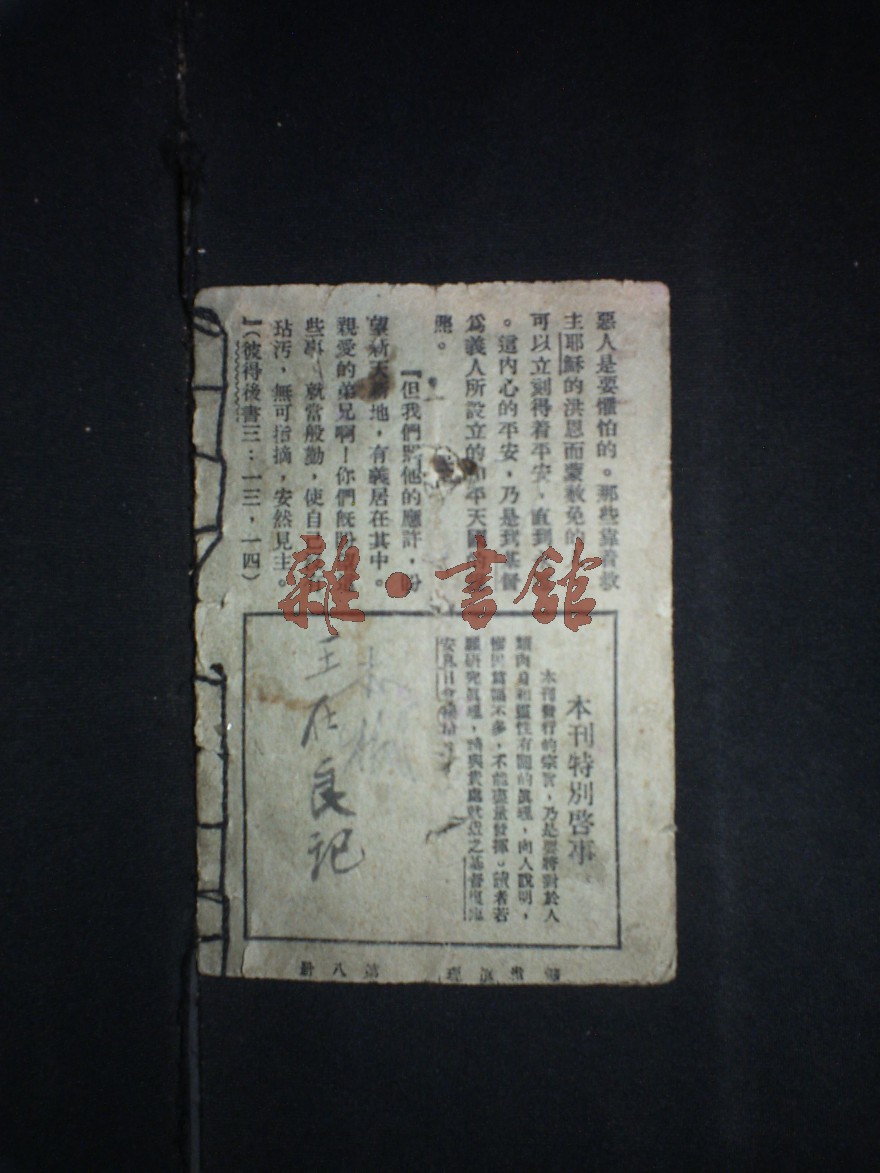 惡人是要懼怕的。那些靠着救
主耶穌的洪恩而蒙赦免的人
可以立刻得着平安,直到
。這內心的平安,乃是我基督
爲義人所設立的和平天國的
照。
『但我們照他的應許,盼
望新天新地,有義居在其中。
親愛的弟兄啊!你們旣盼望這
些事,就當殷勤,使自己沒有
玷汚,無可指摘,安然見主。
』(彼得後書三:一三,一四)
雜·書館
本刊特別啓事
本刊發行的宗旨,乃是要將對於人
類肉身和靈性有關的眞理,向人說明,
惟因篇幅不多,不能盡量發揮。讀者若
願研究眞理,請與貴處就近之基督復臨
安息日會
王在良記
第八計